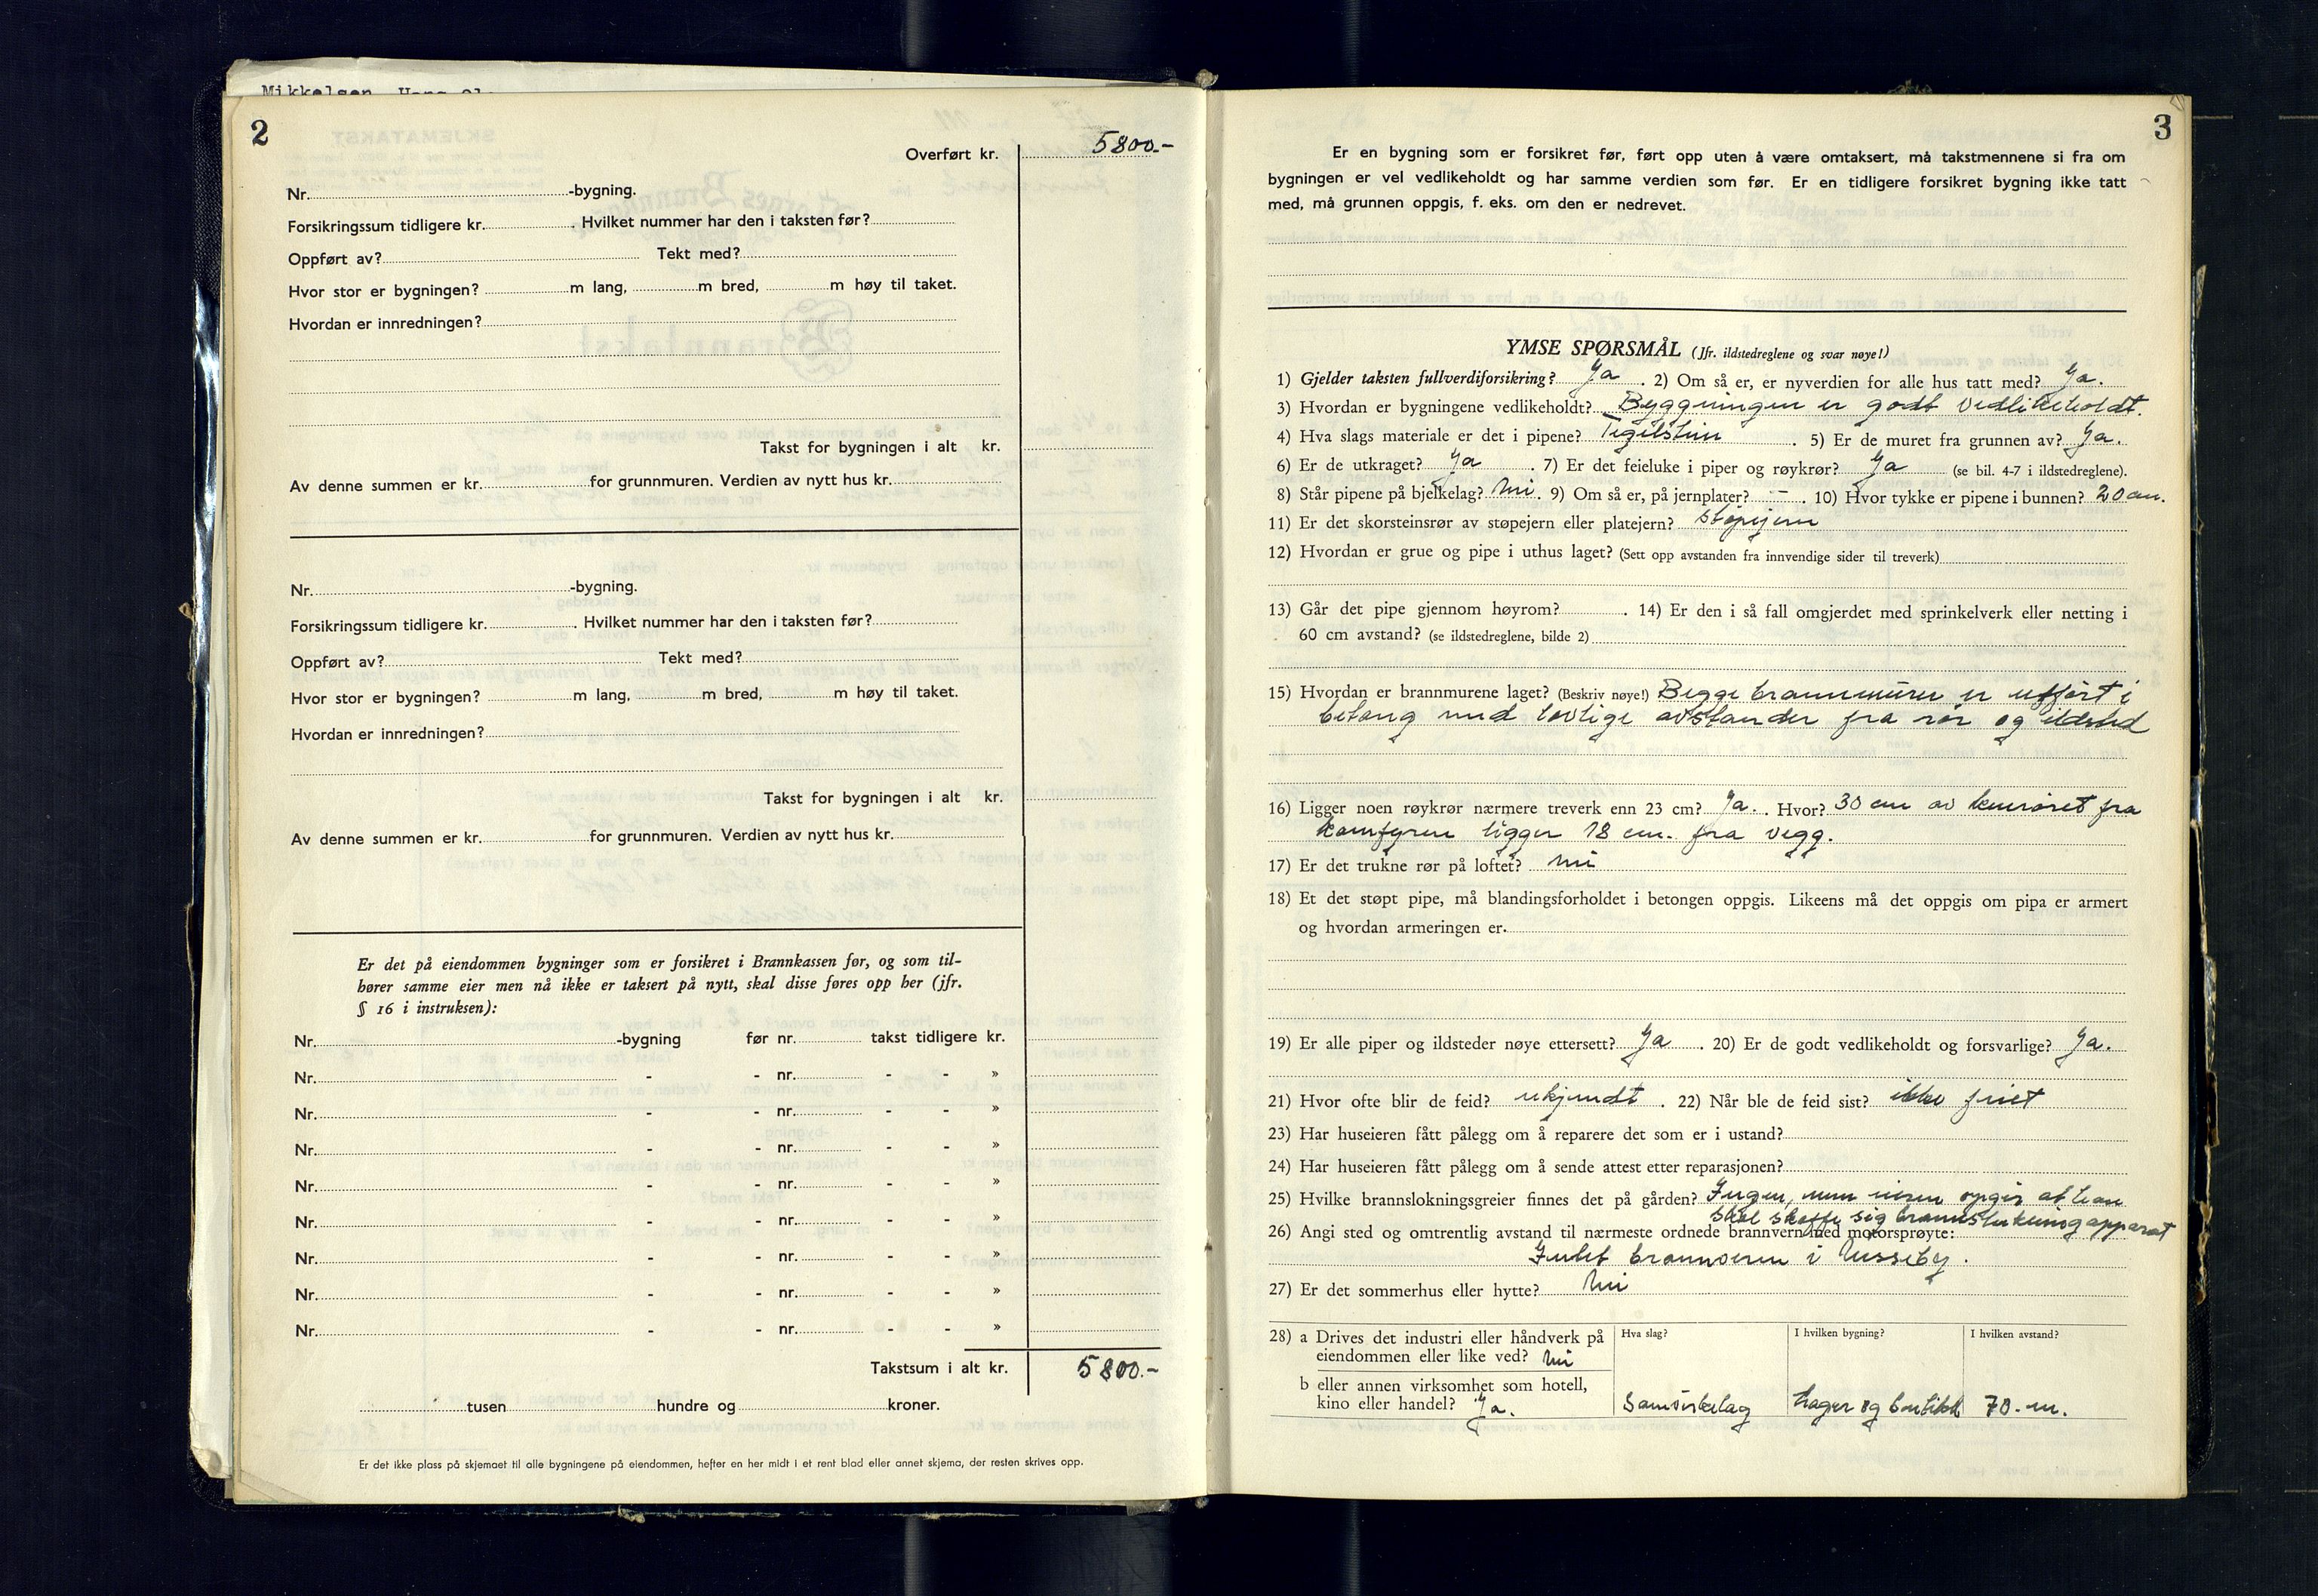 Mikkelsen, Hans
2
Overført kr. 5800.-
Nr. -bygning.
Forsikringssum tidligere kr. . Hvilket nummer har den i taksten før?
Oppført av? Tekt med?
Hvor stor er bygningen? m lang, m bred, m høy til taket.
Hvordan er innredningen?
Takst for bygningen i alt kr.
Av denne summen er kr. for grunnmuren. Verdien av nytt hus kr.
Nr. -bygning.
Forsikringssum tidligere kr. . Hvilket nummer har den i taksten før?
Oppført av? Tekt med?
Hvor stor er bygningen? m lang, m bred, m høy til taket.
Hvordan er innredningen?
Takst for bygningen i alt kr.
Av denne summen er kr. for grunnmuren. Verdien av nytt hus kr.
Er det på eiendommen bygninger som er forsikret i Brannkassen før, og som til-
hører samme eier men nå ikke er taksert på nytt, skal disse føres opp her (jfr.
§ 16 i instruksen):
Nr. -bygning før nr. takst tidligere kr.
Nr. - - nr. - - »
Nr. - - nr. - - »
Nr. - - nr. - - »
Nr. - - nr. - - »
Nr. - - nr. - - »
Nr. - - nr. - - »
Nr. - - nr. - - »
Nr. - - nr. - - »
Takstsum i alt kr. 5800.-
tusen hundre og kroner.
Er det ikke plass på skjemaet til alle bygningene på eiendommen, hefter en her midt i et rent blad eller annet skjema, der resten skrives opp.
3
Er en bygning som er forsikret før, ført opp uten å være omtaksert, må takstmennene si fra om
bygningen er vel vedlikeholdt og har samme verdien som før. Er en tidligere forsikret bygning ikke tatt
med, må grunnen oppgis, f. eks. om den er nedrevet.
YMSE SPØRSMÅL (Jfr. ildstedreglene og svar nøye!)
1) Gjelder taksten fullverdiforsikring? Ja . 2) Om så er, er nyverdien for alle hus tatt med? Ja.
3) Hvordan er bygningene vedlikeholdt? Byggningen er godt vedlikeholdt.
4) Hva slags materiale er det i pipene? Tegelstein . 5) Er de muret fra grunnen av? Ja.
6) Er de utkraget? Ja . 7) Er det feieluke i piper og røykrør? Ja (se bil. 4-7 i ildstedreglene).
8) Står pipene på bjelkelag? Nei . 9) Om så er, på jernplater? - . 10) Hvor tykke er pipene i bunnen? 20 cm.
11) Er det skorsteinsrør av støpejern eller platejern? Støpejern
12) Hvordan er grue og pipe i uthus laget? (Sett opp avstanden fra innvendige sider til treverk)
13) Går det pipe gjennom høyrom? . 14) Er den i så fall omgjerdet med sprinkelverk eller netting i
60 cm avstand? (se ildstedreglene, bilde 2)
15) Hvordan er brannmurene laget? (Beskriv nøye!) Begge brannmurer er utført i
betong med lovlige avstander fra rør og ildsted
16) Ligger noen røykrør nærmere treverk enn 23 cm? Ja. . Hvor? 30 cm av knerøret fra
komfyren ligger 18 cm. fra vegg.
17) Er det trukne rør på loftet? nei
18) Et det støpt pipe, må blandingsforholdet i betongen oppgis. Likeens må det oppgis om pipa er armert
og hvordan armeringen er.
19) Er alle piper og ildsteder nøye ettersett? Ja . 20) Er de godt vedlikeholdt og forsvarlige? Ja.
21) Hvor ofte blir de feid? ukjendt . 22) Når ble de feid sist? ikke feiet
23) Har huseieren fått pålegg om å reparere det som er i ustand?
24) Har huseieren fått pålegg om å sende attest etter reparasjonen?
25) Hvilke brannslokningsgreier finnes det på gården? Ingen, men eieren opgir at han
skal skaffe sig brannslukningapparat
26) Angi sted og omtrentlig avstand til nærmeste ordnede brannvern med motorsprøyte:
Intet brannvern i Nesseby.
27) Er det sommerhus eller hytte? Nei
28) a Drives det industri eller håndverk på
eiendommen eller like ved? Nei
Hva slag? I hvilken bygning? I hvilken avstand?
b eller annen virksomhet som hotell,
kino eller handel? Ja. Samvirkelag Lager og butikk 70. m.